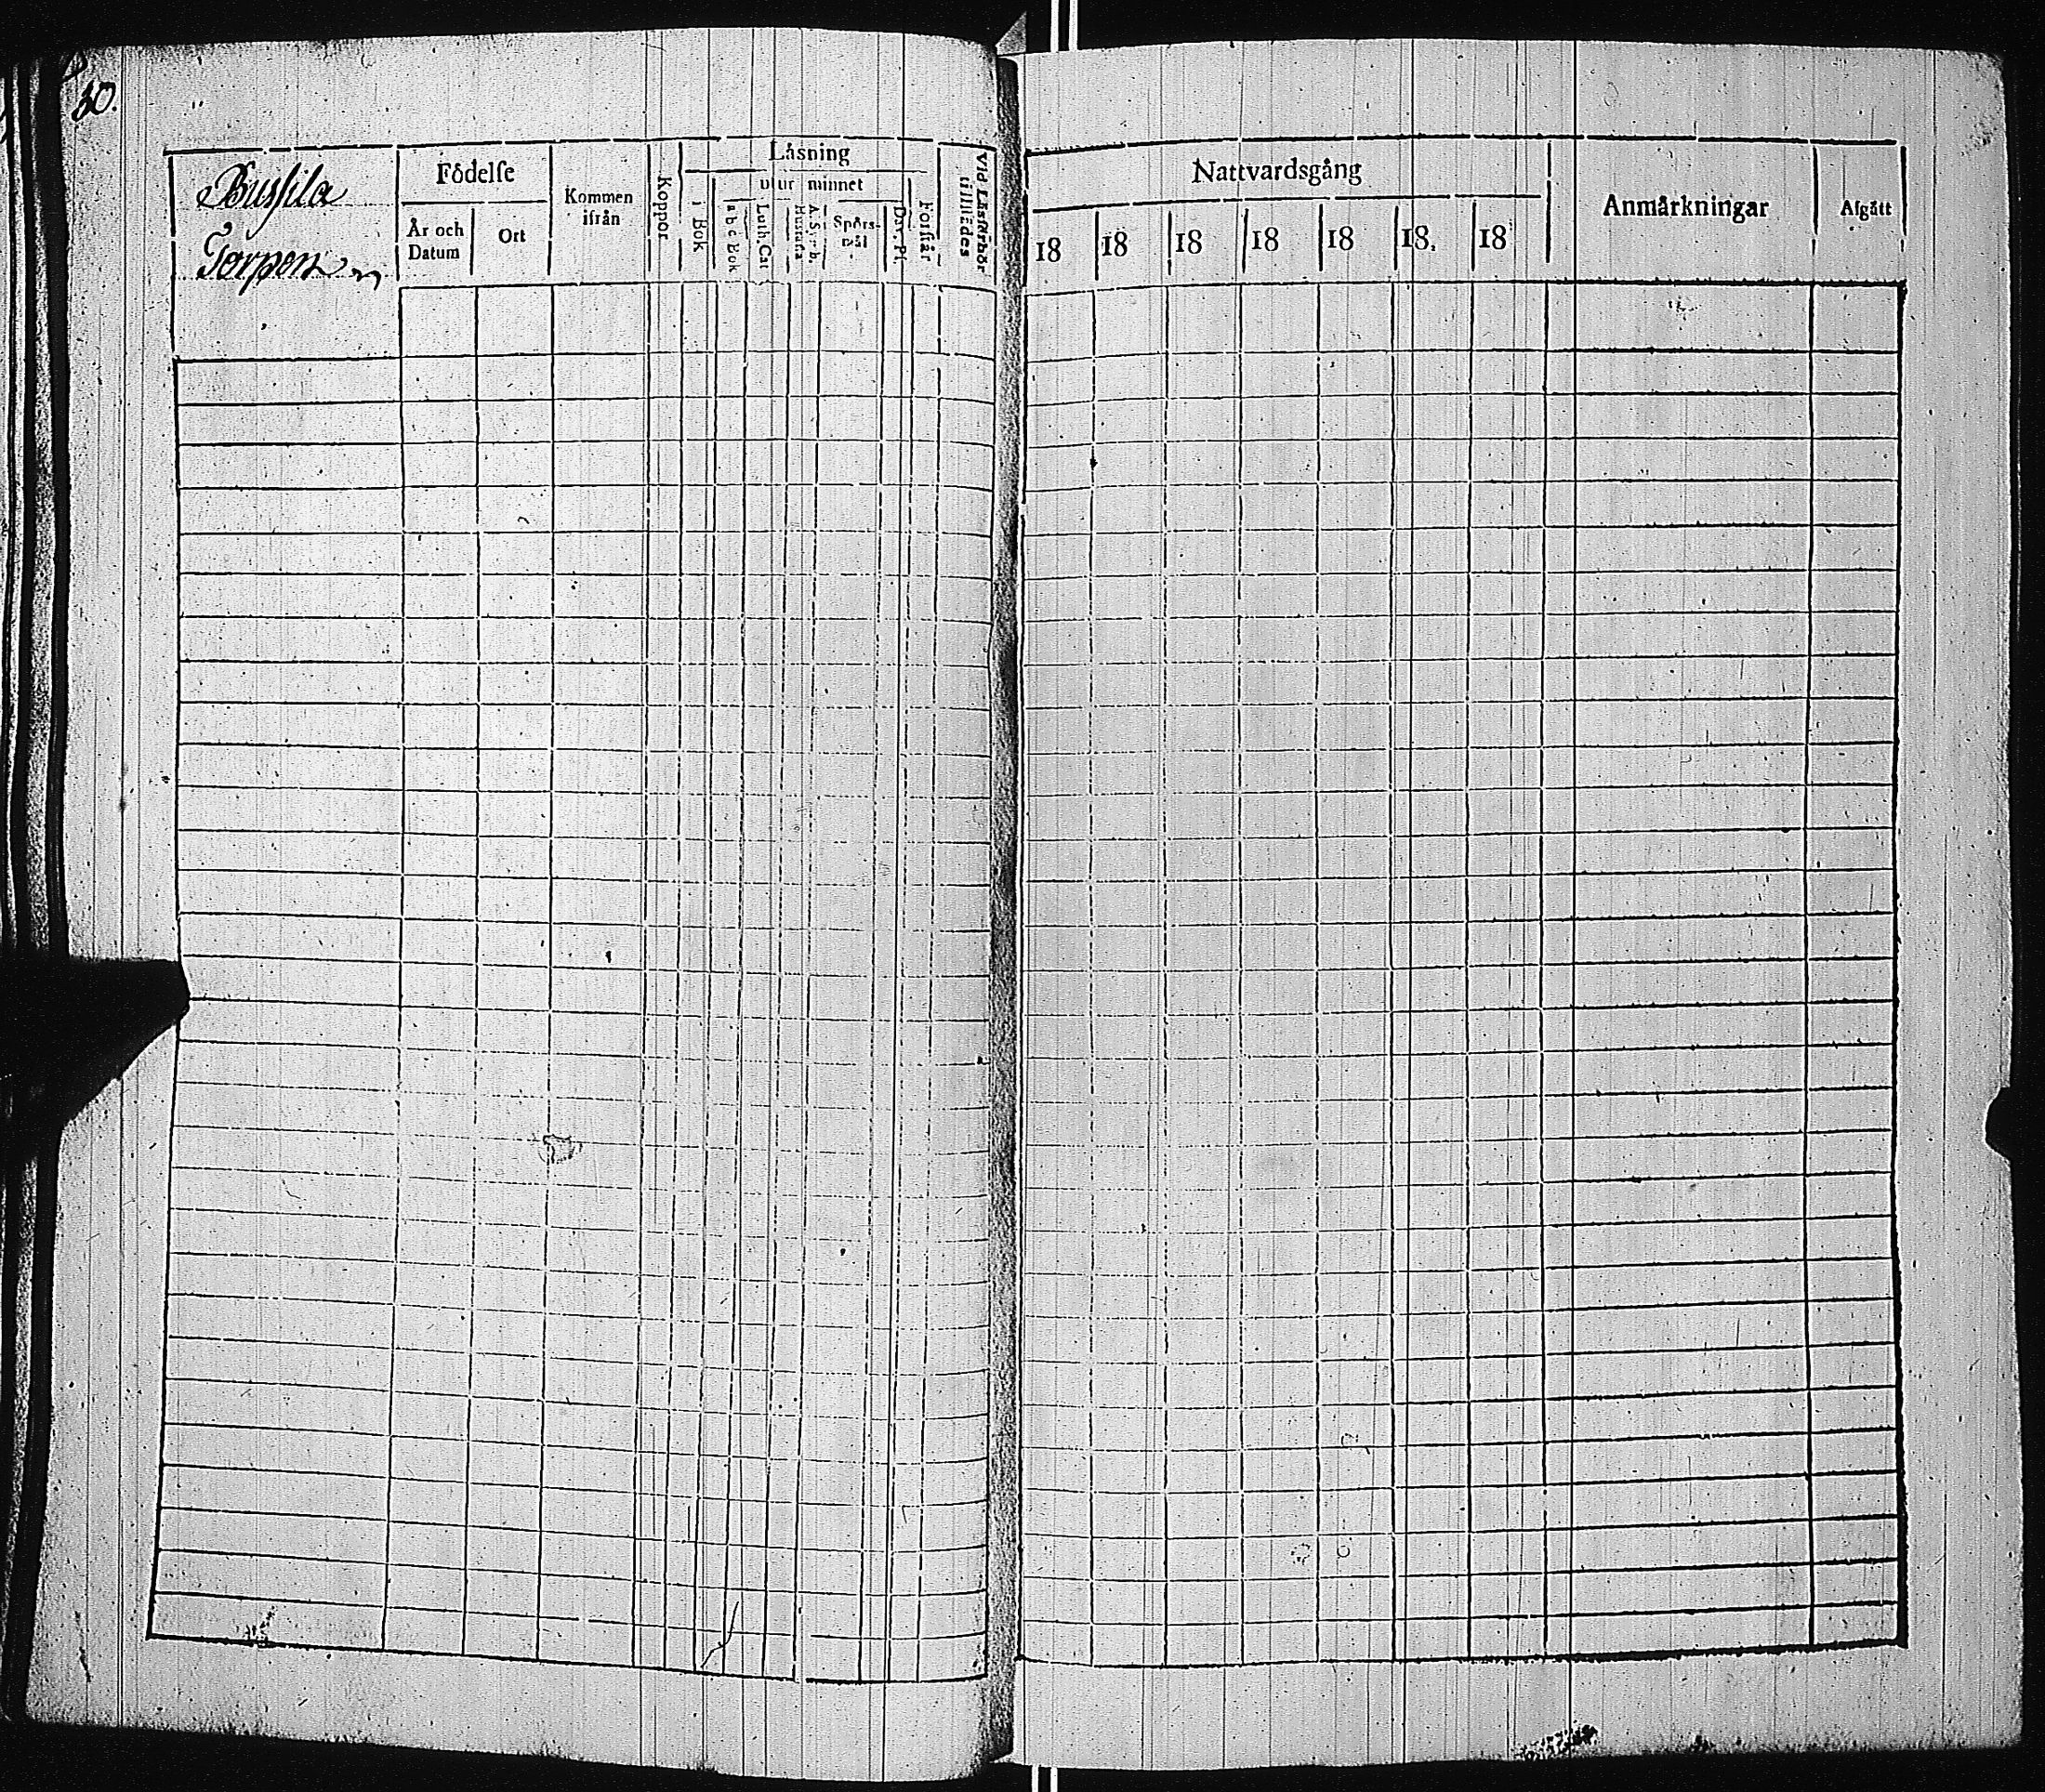 30.
Bussila
Torpen
Födelse
År och Datum
Ort
Kommen ifrån
Koppor
Läsning
i Bok
utur minnet
a b c Bok
Luth. Cat
Hustafla
A. S. r b.
Spörs-mål
Dav. Ps.
Förstår
Vid Läsförhör tillstädes
Nattvardsgång
18
18
18
18
18
18.
18
Anmärkningar
Afgått